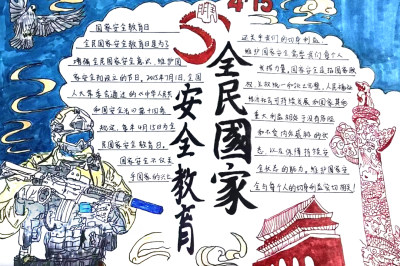 4·15
全民國家
安全教育
国家安全教育日
全民国家安全教育日是为了
增强全民国家安全意识，维护国
家安全而设立的节日。2015年7月1日，全国
人大常委会通过的《中华人民共
和国安全法》第十四条
规定，每年4月15日为全
民国家安全教育日。
国家安全不仅关
乎国家的兴亡
还关乎我们的切身利益
维护国家安全需要我们每个人
国家安全是指国家政
权、主权、统一和领土完整、人民福祉
经济社会可持续发展和国家其他
重大利益相对处于没有危险
和不受内外威胁的状
态，以及保障持续安
全状态的能力。维护国家安
全与每个人的切身利益密切相关！